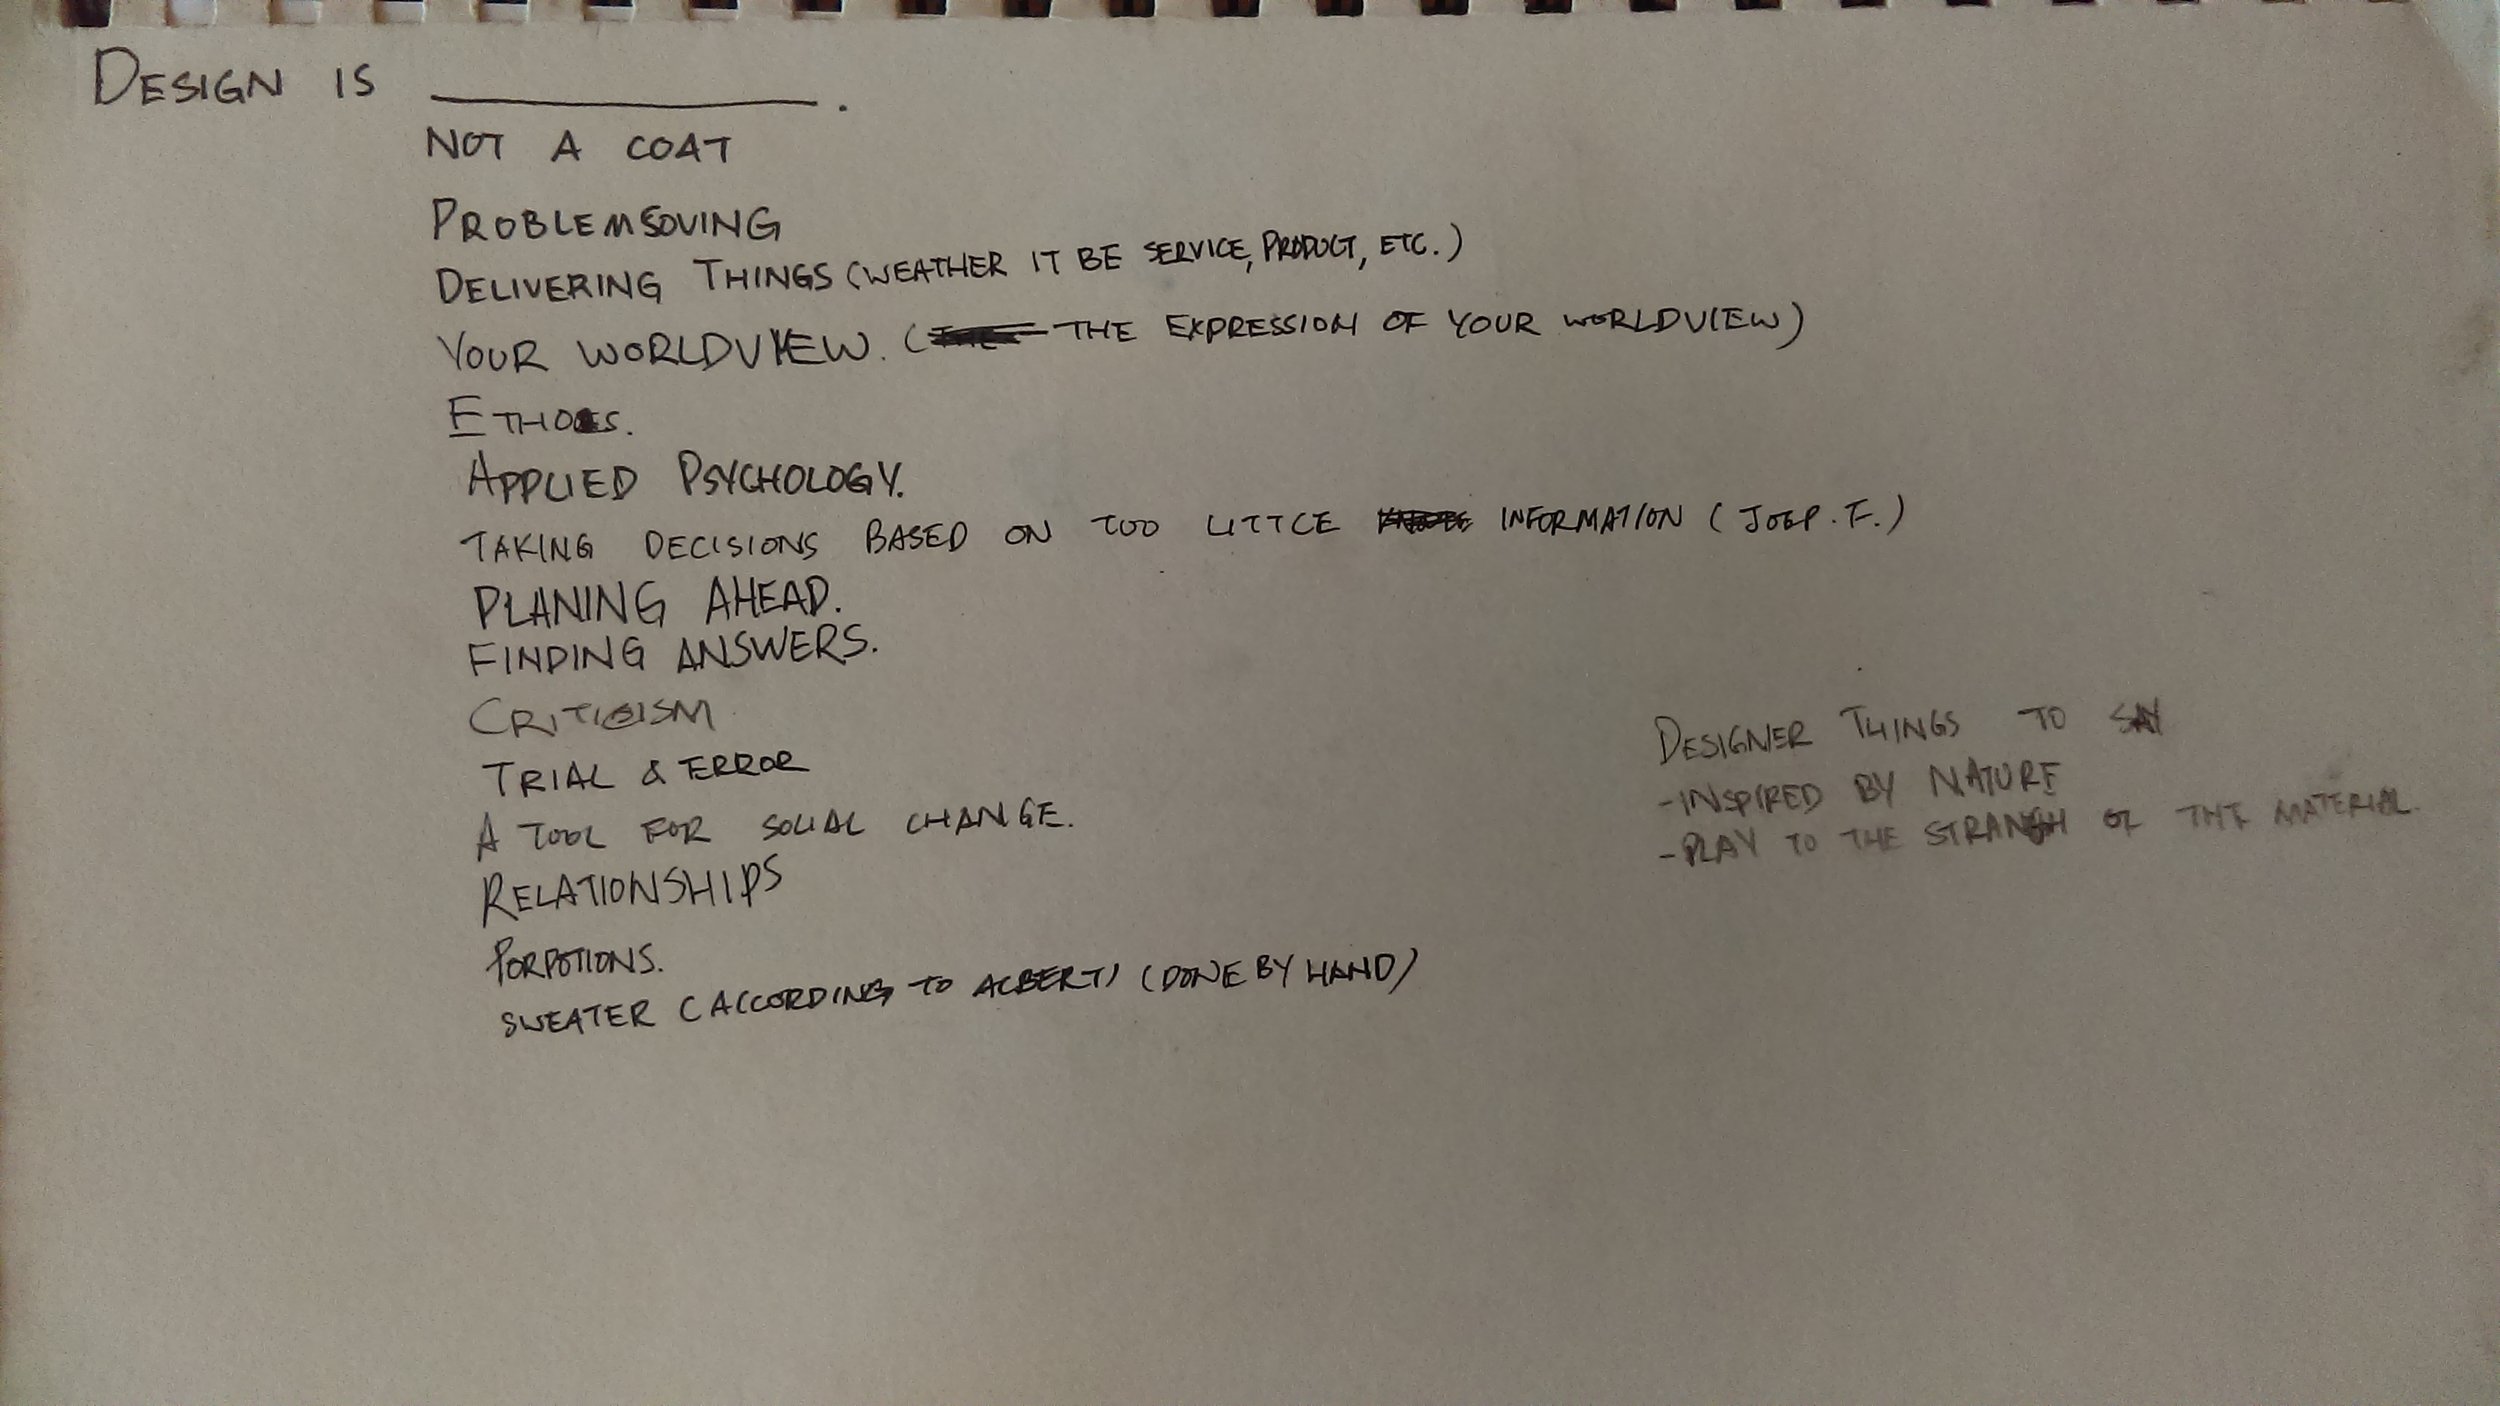 DESIGN IS ________.
NOT A COAT
PROBLEMSOVING
DELIVERING THINGS (WEATHER IT BE SERVICE, PRODUCT, ETC.)
YOUR WORLDVIEW. (THE EXPRESSION OF YOUR WORLDVIEW)
ETHOS.
APPLIED PSYCHOLOGY.
TAKING DECISIONS BASED ON TOO LITTLE INFORMATION (JOEP. F.)
PLANING AHEAD.
FINDING ANSWERS.
CRITICISM
TRIAL & ERROR
A TOOL FOR SOCIAL CHANGE.
RELATIONSHIPS
PORPOTIONS.
SWEATER (ACCORDING TO ALBERT) (DONE BY HAND)
DESIGNER THINGS TO SAY
-INSPIRED BY NATURE
-PLAY TO THE OF THE MATERIAL.